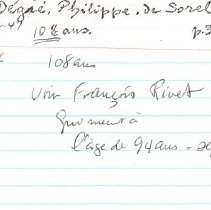 Dégné, Philippe, de Sorel
108 ans. p.3
108 ans
Voir François Rivet
Qui meurt à
l'âge de 94 ans -